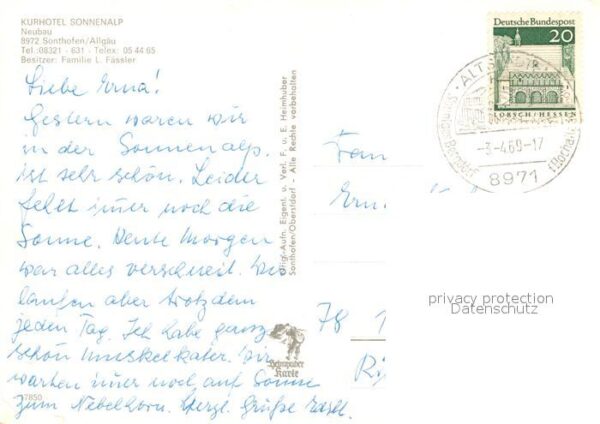 KURHOTEL SONNENALP
Neubau
8972 Sonthofen/Allgäu
Tel.:08321 - 631 - Telex: 05 44 65
Besitzer: Familie L. Fässler
Liebe Erna!
Gestern waren wir
in der Sonnenalp.
ist sehr schön. Leider
fehlt immer noch die
Sonne. Heute Morgen
war alles verschneit. Wir
laufen aber trotzdem
jeden Tag. Ich habe ganz
schön Muskelkater. Wir
warten immer noch auf Sonne
zum Nebelhorn. Herzl. Grüße
7850
Orig.-Aufn. Eigent. u. Verl. F. u. E. Heimhuber
Sonthofen/Oberstdorf - Alle Rechte vorbehalten
Heimhuber
Karte
Deutsche Bundespost
20
LORSCH/HESSEN
-3-4.69-17
8971
Fam
Ern
78 1
privacy protection
Datenschutz